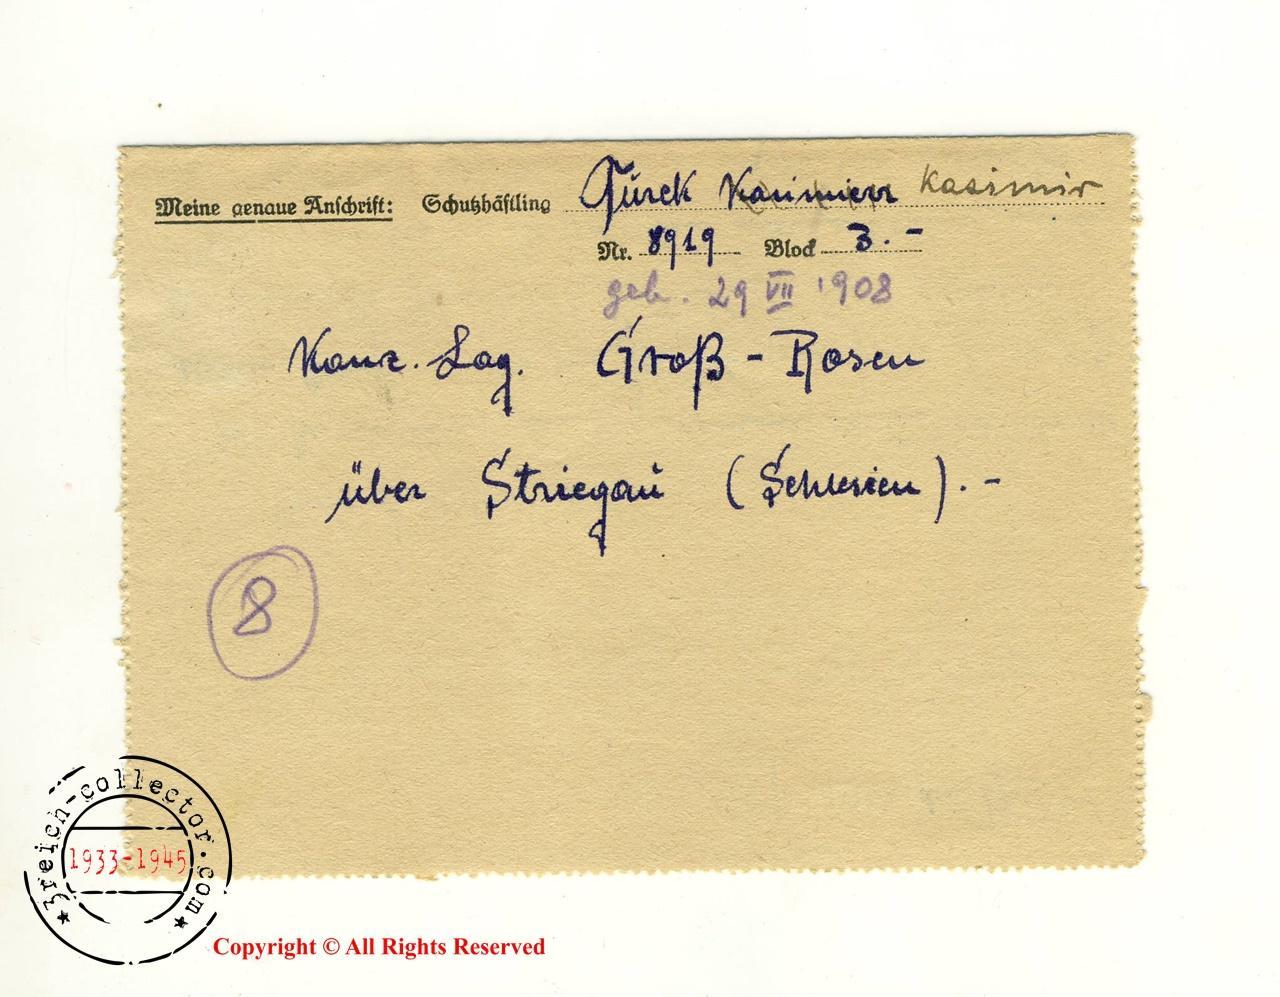 Meine genaue Anschrift: Schutzhäftling Türck Kasimierz Kasimir
Nr. 8919 Block 3.-
geb. 29 VII 1908
Konz. Lag. Groß-Rosen
über Striegau (Schlesien).-
8
3reich-collector.com
1933-1945
Copyright © All Rights Reserved